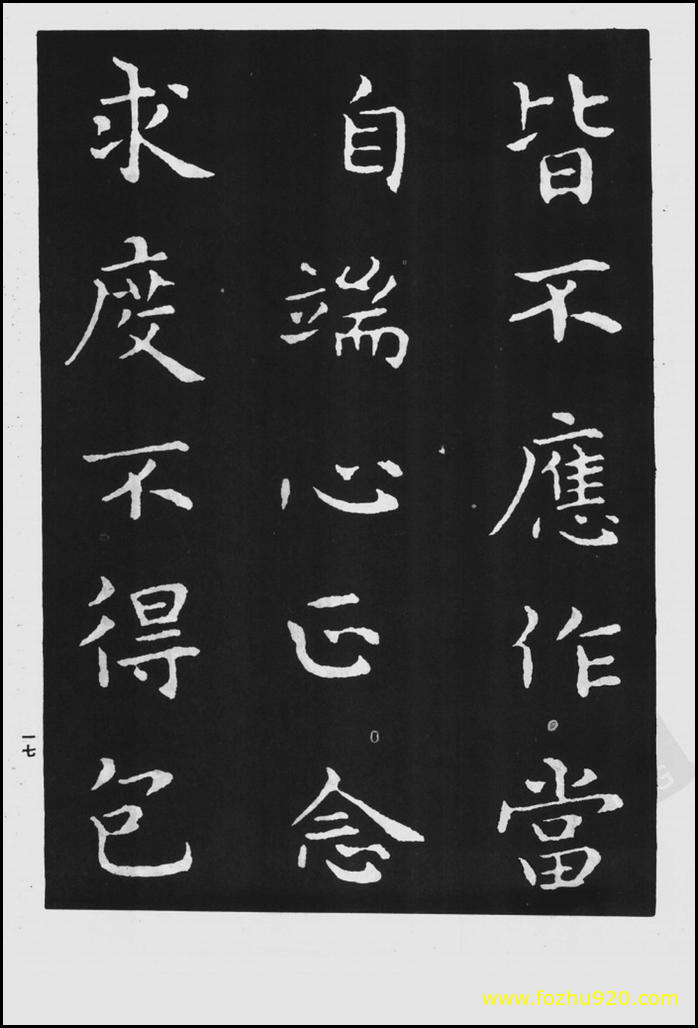 皆不應作當
自端心正念
求度不得包
一七
www.fozhu920.com